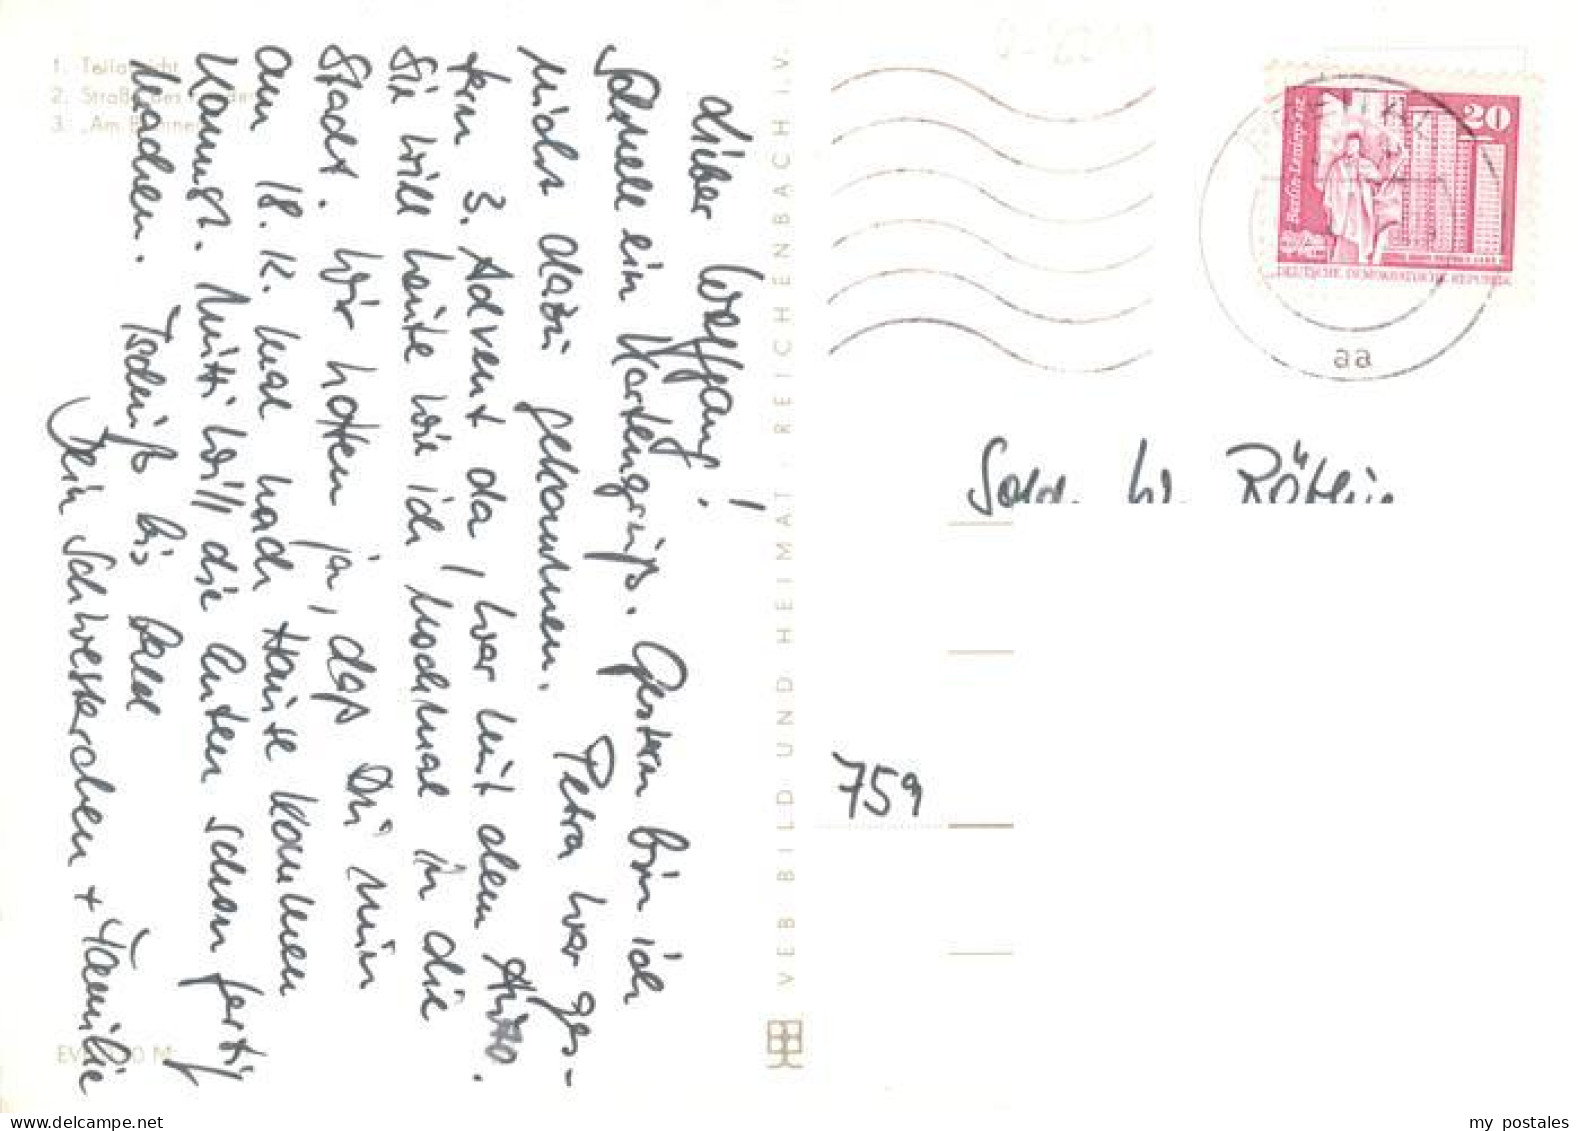 1. Teilansicht
2. Straße des
3. „Am
Lieber Wolfgang!
Schnell ein Kartengruß. Gestern bin ich
nicht dazu gekommen. Petra war ges-
tern 3. Advent da, war mit dem Auto.
Sie will heute wie ich nochmal in die
Stadt. Wir hoffen ja, daß Du nun
am 18.12. mal nach Hause kommen
kannst. Mutti will die Enten schon fertig
machen. Tschüß bis bald
Dein Schwesterchen + Familie
EV 0 M
VEB BILD UND HEIMAT REICHENBACH I. V.
20
Berlin-Leninplatz
DDR
DEUTSCHE DEMOKRATISCHE REPUBLIK
aa
Sold. W. Röhlig
759
my postales